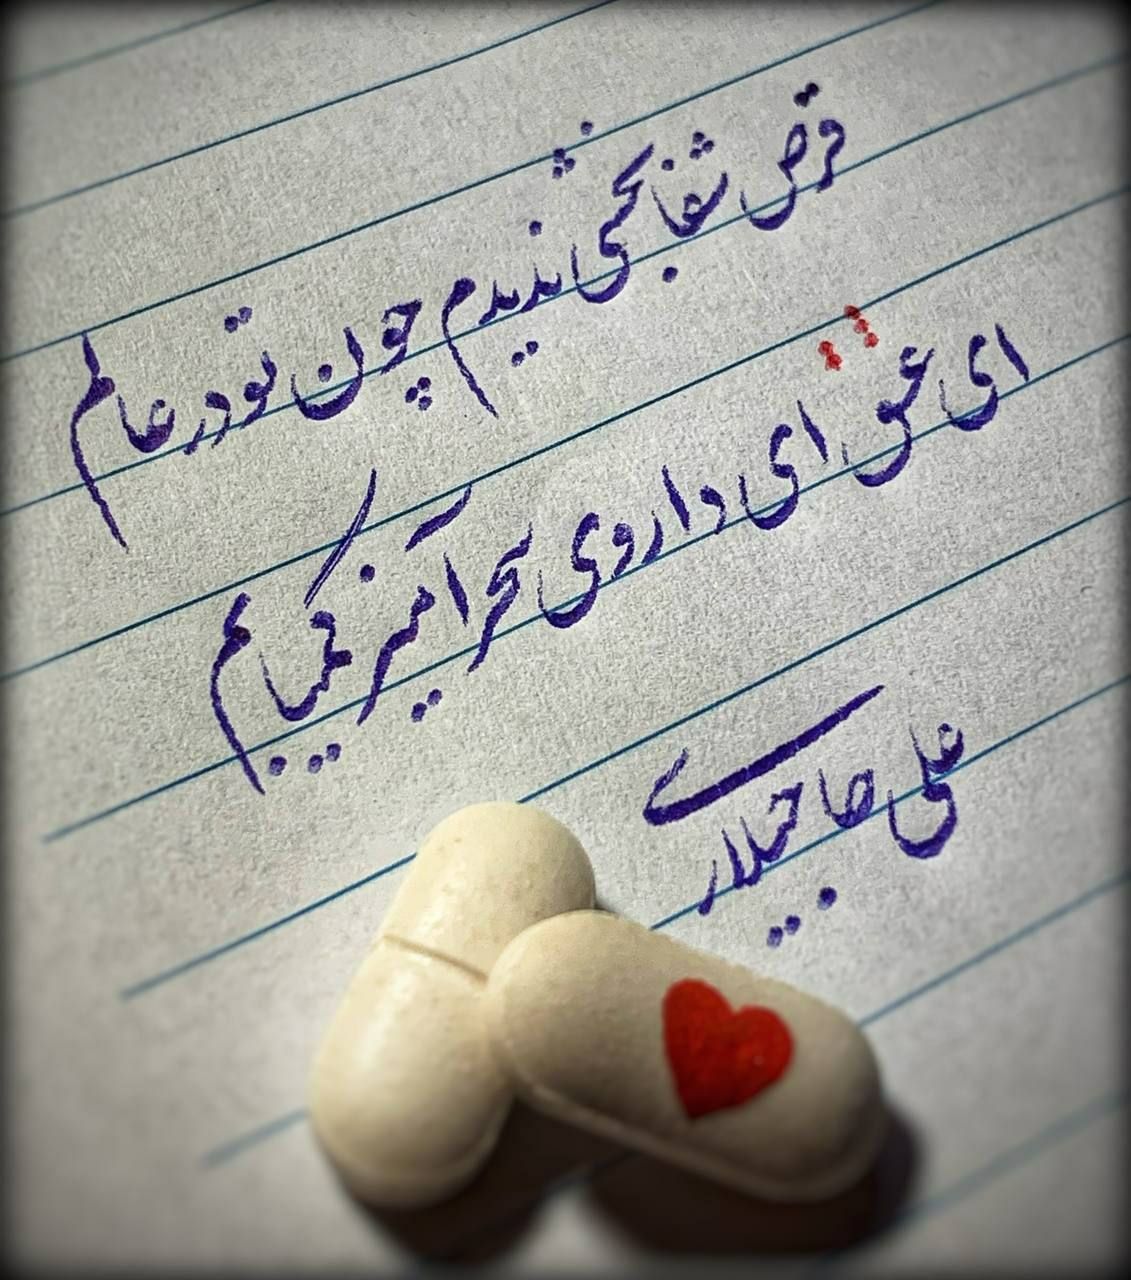 قرص شفابخشی ندیدم چون تو در عالم
ای عشق ای داروی سحرآمیز کمیابم
علی حاجیلاری